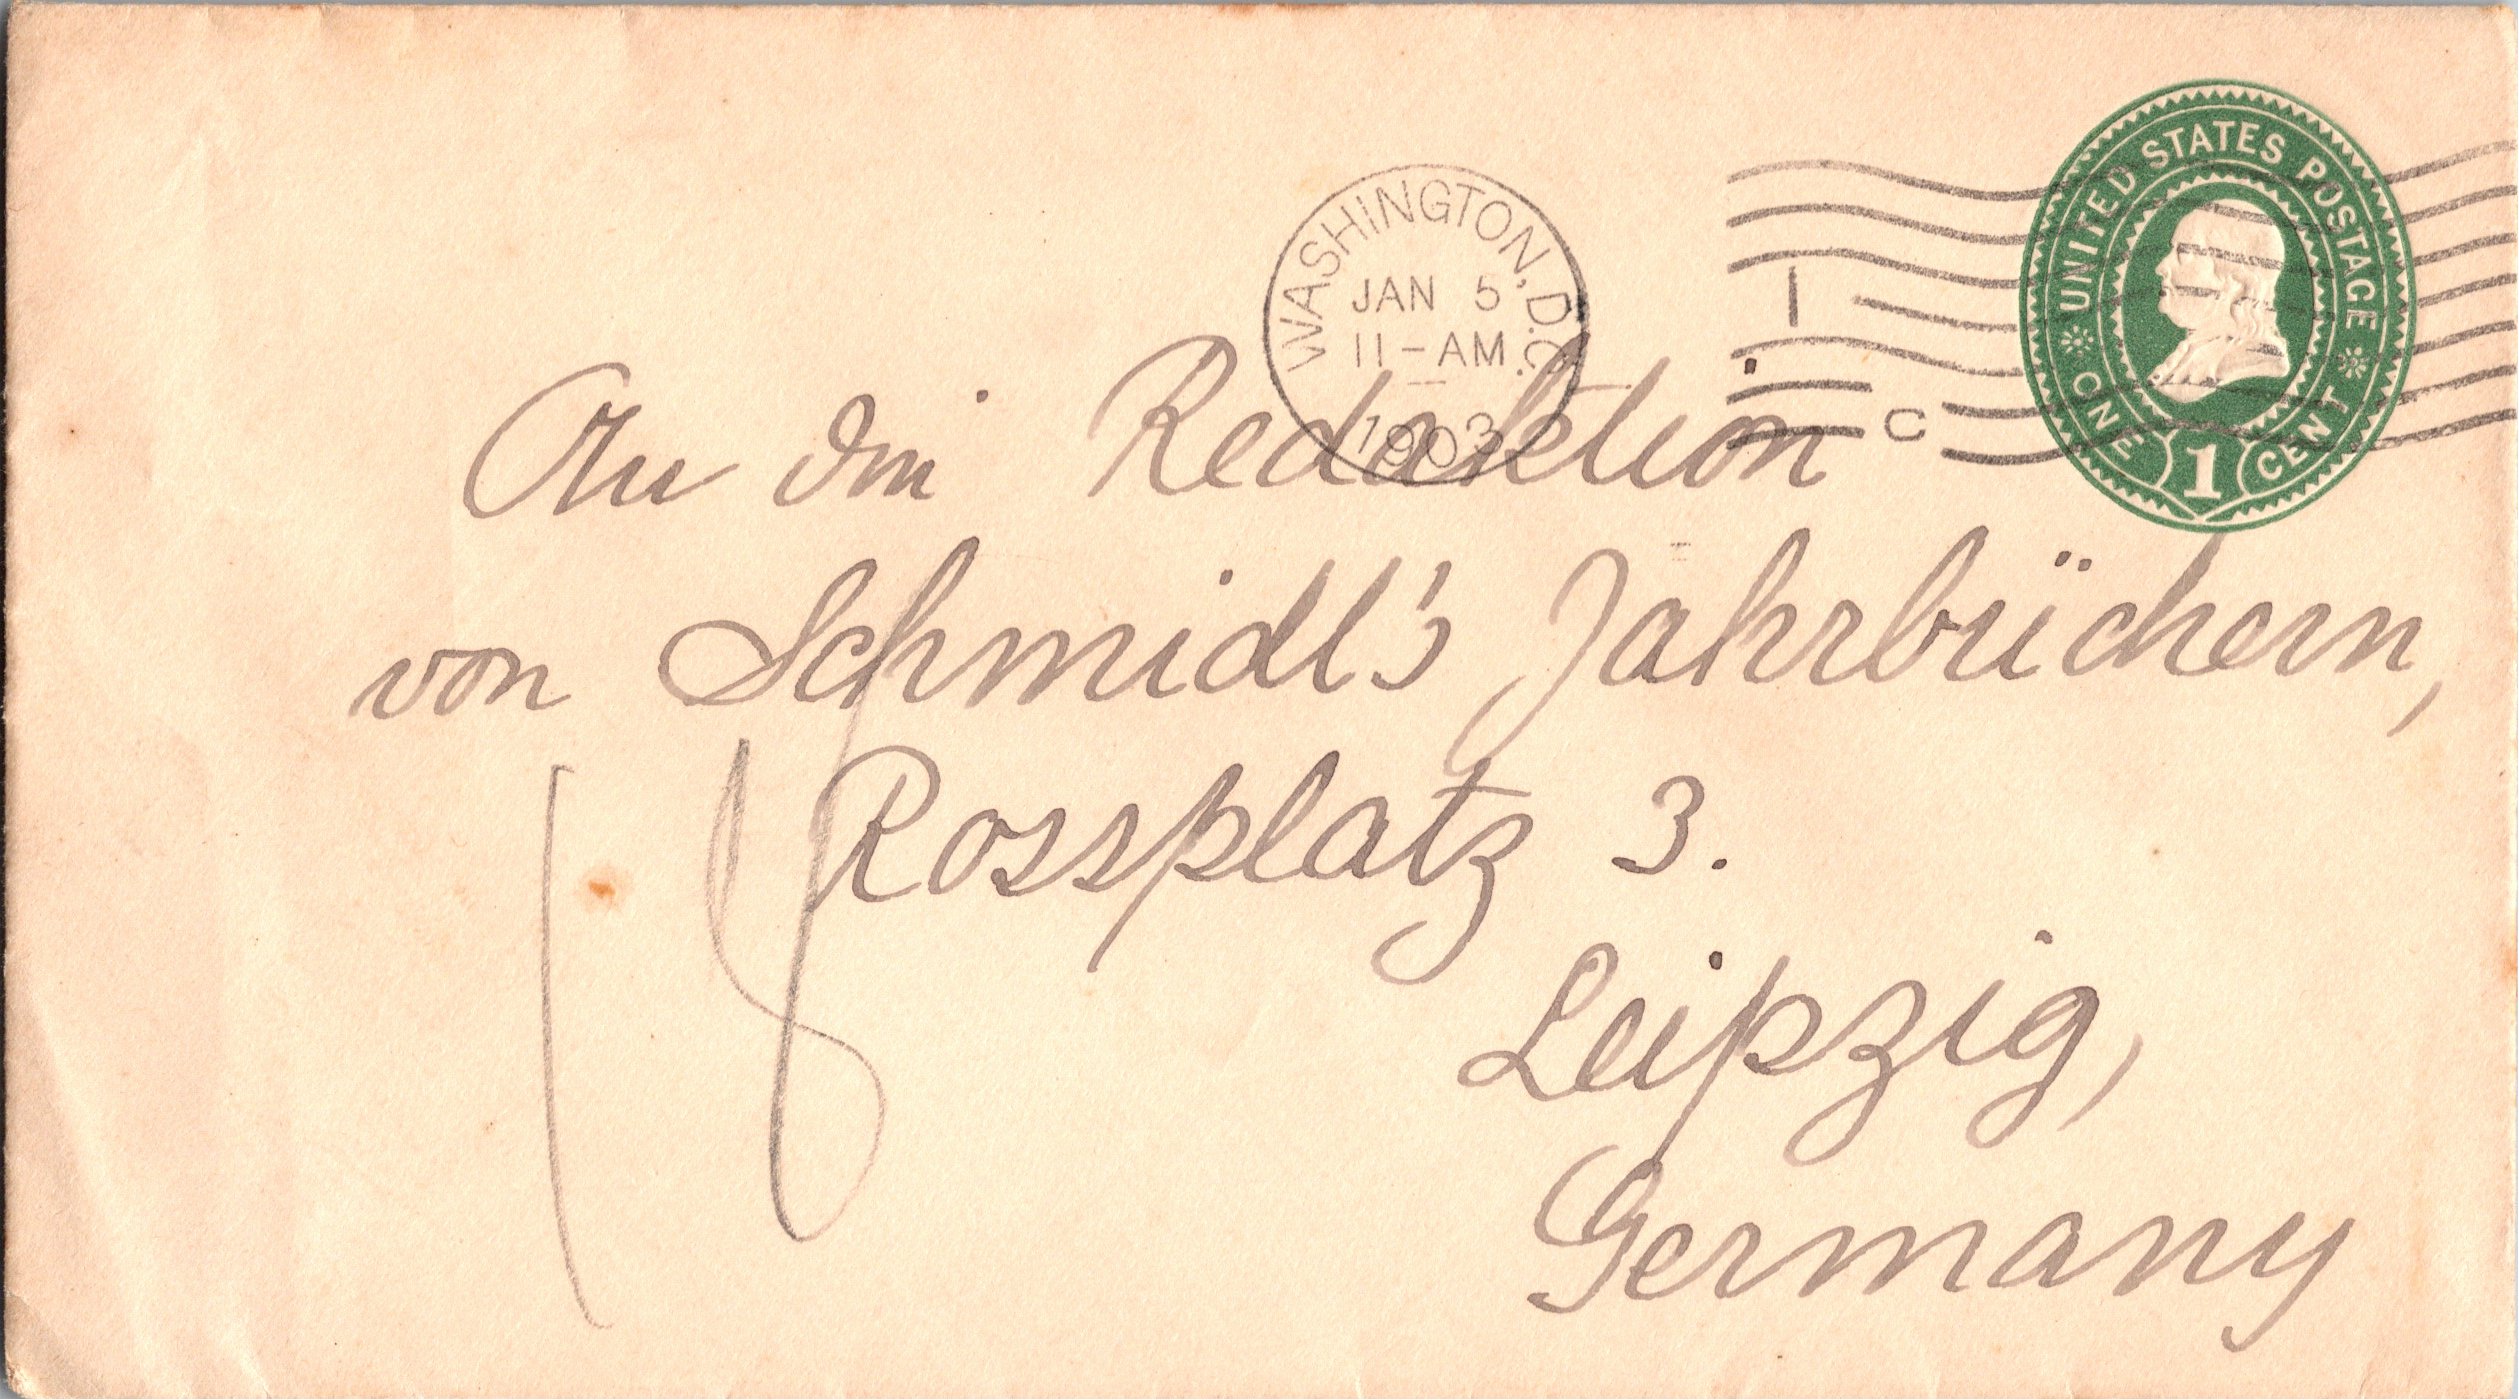 UNITED STATES POSTAGE
ONE 1 CENT
WASHINGTON, D.C.
JAN 5
11-AM
1903
1
C
An die Redaktion
von Schmidt's Jahrbüchern,
Rossplatz 3.
Leipzig,
Germany
18